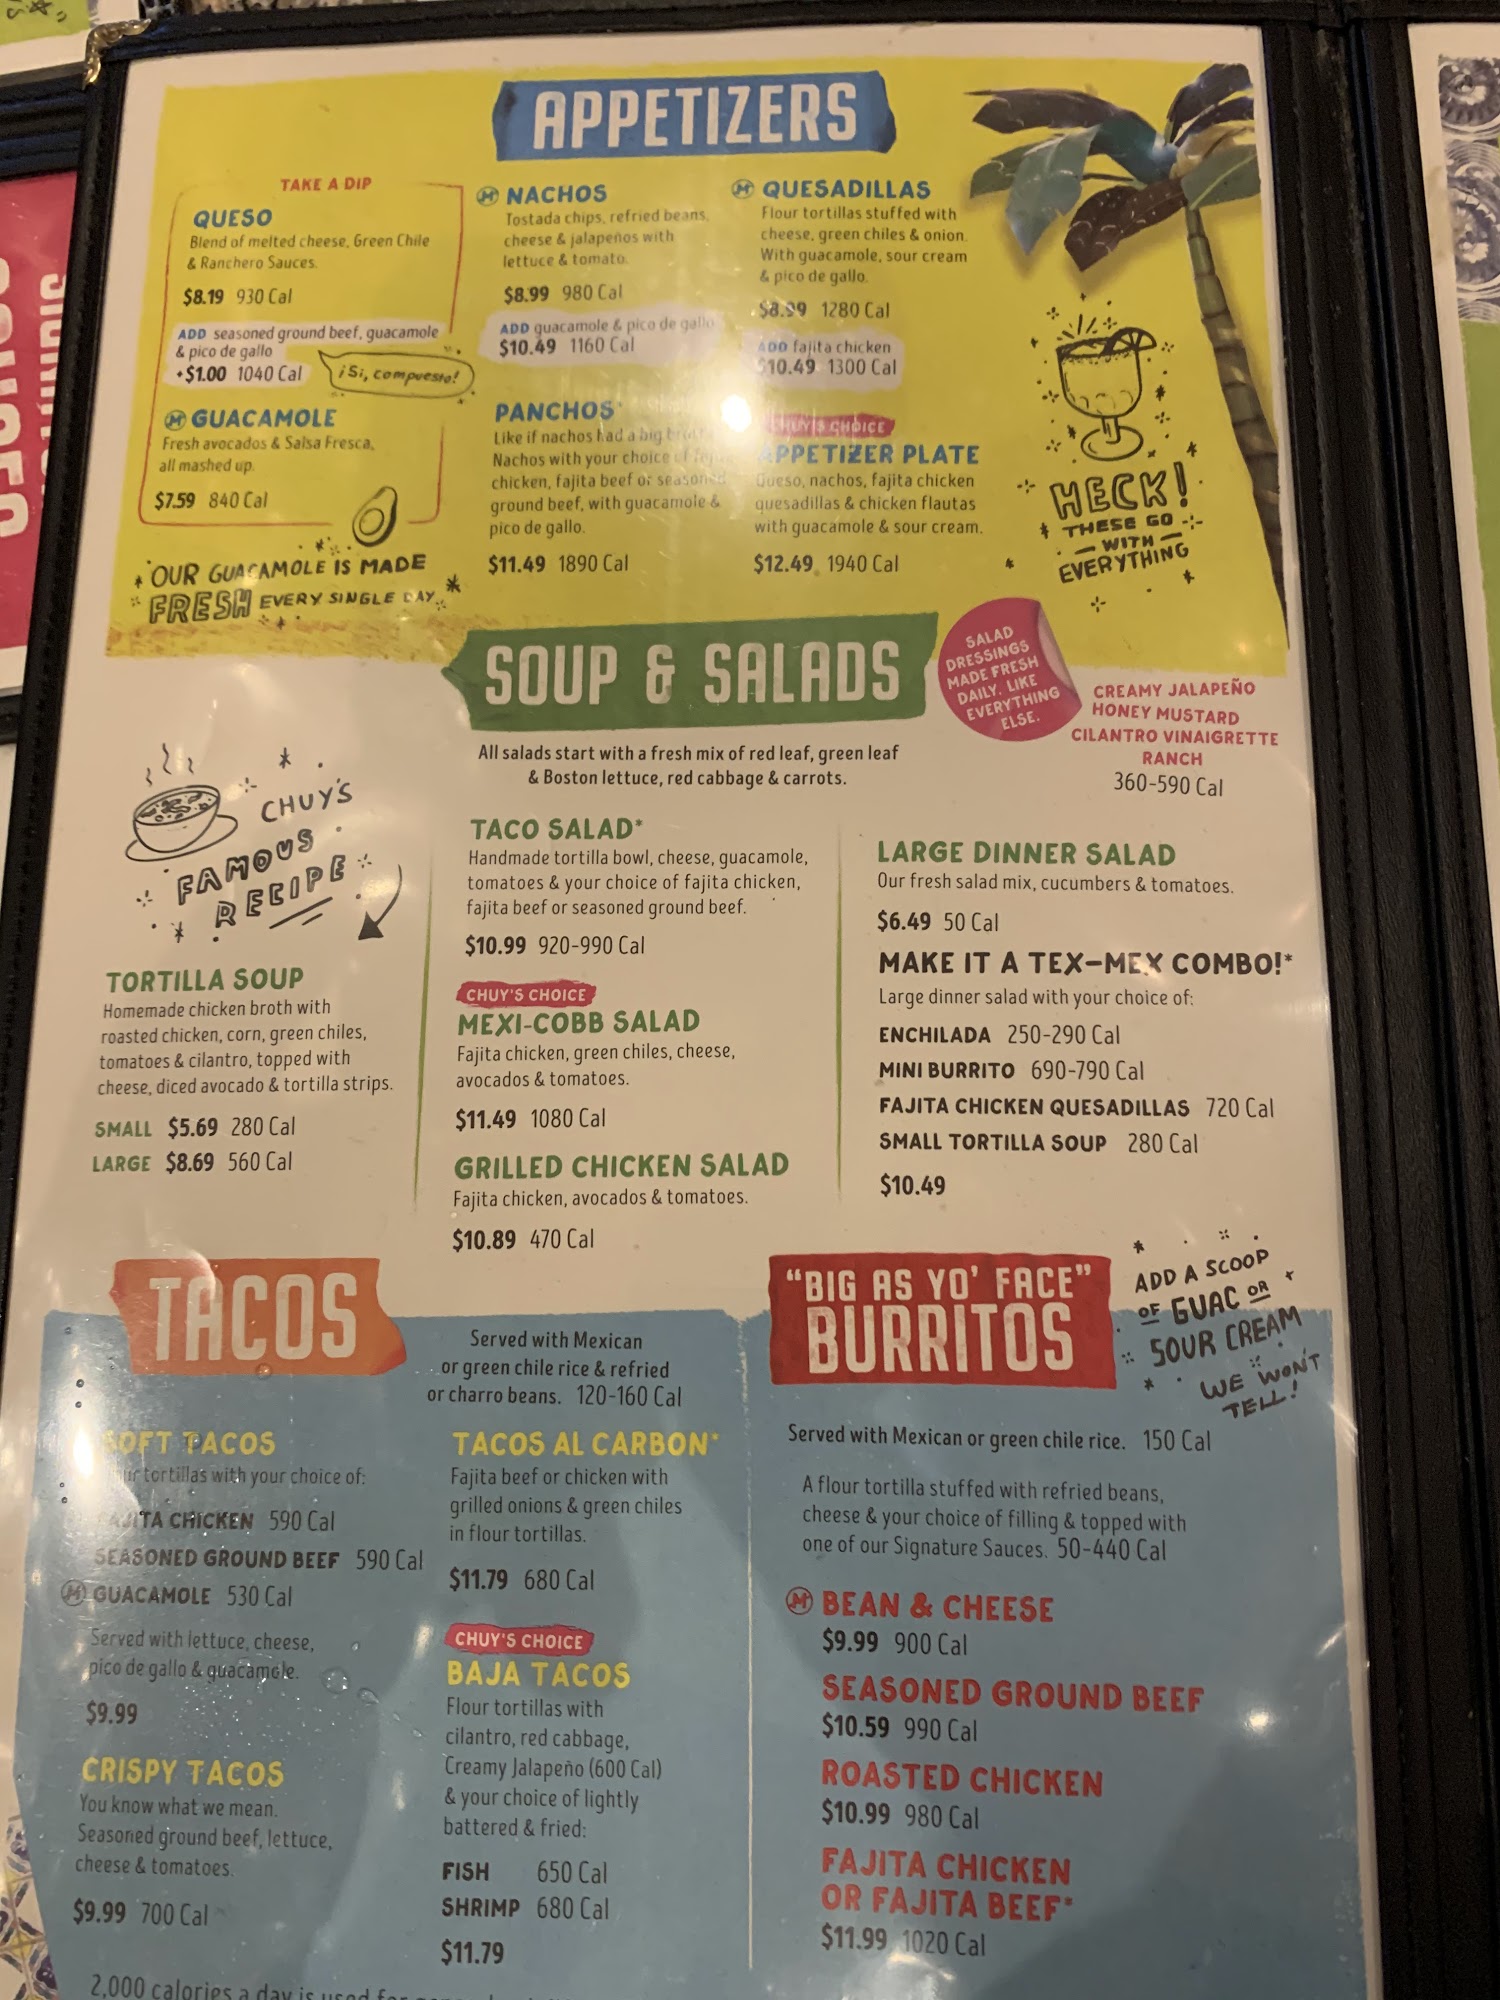 APPETIZERS
TAKE A DIP
QUESO
Blend of melted cheese, Green Chile
& Ranchero Sauces.
$8.19 930 Cal
ADD seasoned ground beef, guacamole
& pico de gallo
+$1.00 1040 Cal
¡Si, compuesto!
GUACAMOLE
Fresh avocados & Salsa Fresca,
all mashed up.
$7.59 840 Cal
OUR GUACAMOLE IS MADE
FRESH EVERY SINGLE DAY
NACHOS
Tostada chips, refried beans,
cheese & jalapeños with
lettuce & tomato.
$8.99 980 Cal
ADD guacamole & pico de gallo
$10.49 1160 Cal
PANCHOS*
Like if nachos had a big
Nachos with your choice of
chicken, fajita beef or seasoned
ground beef, with guacamole &
pico de gallo.
$11.49 1890 Cal
QUESADILLAS
Flour tortillas stuffed with
cheese, green chiles & onion.
With guacamole, sour cream
& pico de gallo.
$8.99 1280 Cal
ADD fajita chicken
$10.49 1300 Cal
CHUY'S CHOICE
APPETIZER PLATE
Queso, nachos, fajita chicken
quesadillas & chicken flautas
with guacamole & sour cream.
$12.49 1940 Cal
HECK!
THESE GO
WITH
EVERYTHING
SOUP & SALADS
SALAD
DRESSINGS
MADE FRESH
DAILY. LIKE
EVERYTHING
ELSE.
CREAMY JALAPEÑO
HONEY MUSTARD
CILANTRO VINAIGRETTE
RANCH
360-590 Cal
All salads start with a fresh mix of red leaf, green leaf
& Boston lettuce, red cabbage & carrots.
CHUY'S
FAMOUS
RECIPE
TORTILLA SOUP
Homemade chicken broth with
roasted chicken, corn, green chiles,
tomatoes & cilantro, topped with
cheese, diced avocado & tortilla strips.
SMALL $5.69 280 Cal
LARGE $8.69 560 Cal
TACO SALAD*
Handmade tortilla bowl, cheese, guacamole,
tomatoes & your choice of fajita chicken,
fajita beef or seasoned ground beef.
$10.99 920-990 Cal
CHUY'S CHOICE
MEXI-COBB SALAD
Fajita chicken, green chiles, cheese,
avocados & tomatoes.
$11.49 1080 Cal
GRILLED CHICKEN SALAD
Fajita chicken, avocados & tomatoes.
$10.89 470 Cal
LARGE DINNER SALAD
Our fresh salad mix, cucumbers & tomatoes.
$6.49 50 Cal
MAKE IT A TEX-MEX COMBO!*
Large dinner salad with your choice of:
ENCHILADA 250-290 Cal
MINI BURRITO 690-790 Cal
FAJITA CHICKEN QUESADILLAS 720 Cal
SMALL TORTILLA SOUP 280 Cal
$10.49
TACOS
Served with Mexican
or green chile rice & refried
or charro beans. 120-160 Cal
SOFT TACOS
tortillas with your choice of:
FAJITA CHICKEN 590 Cal
SEASONED GROUND BEEF 590 Cal
GUACAMOLE 530 Cal
Served with lettuce, cheese,
pico de gallo & guacamole.
$9.99
CRISPY TACOS
You know what we mean.
Seasoned ground beef, lettuce,
cheese & tomatoes.
$9.99 700 Cal
TACOS AL CARBON*
Fajita beef or chicken with
grilled onions & green chiles
in flour tortillas.
$11.79 680 Cal
CHUY'S CHOICE
BAJA TACOS
Flour tortillas with
cilantro, red cabbage,
Creamy Jalapeño (600 Cal)
& your choice of lightly
battered & fried:
FISH 650 Cal
SHRIMP 680 Cal
$11.79
"BIG AS YO' FACE"
BURRITOS
ADD A SCOOP
OF GUAC OR
SOUR CREAM
WE WON'T
TELL!
Served with Mexican or green chile rice. 150 Cal
A flour tortilla stuffed with refried beans,
cheese & your choice of filling & topped with
one of our Signature Sauces. 50-440 Cal
BEAN & CHEESE
$9.99 900 Cal
SEASONED GROUND BEEF
$10.59 990 Cal
ROASTED CHICKEN
$10.99 980 Cal
FAJITA CHICKEN
OR FAJITA BEEF*
$11.99 1020 Cal
2,000 calories a day is used for